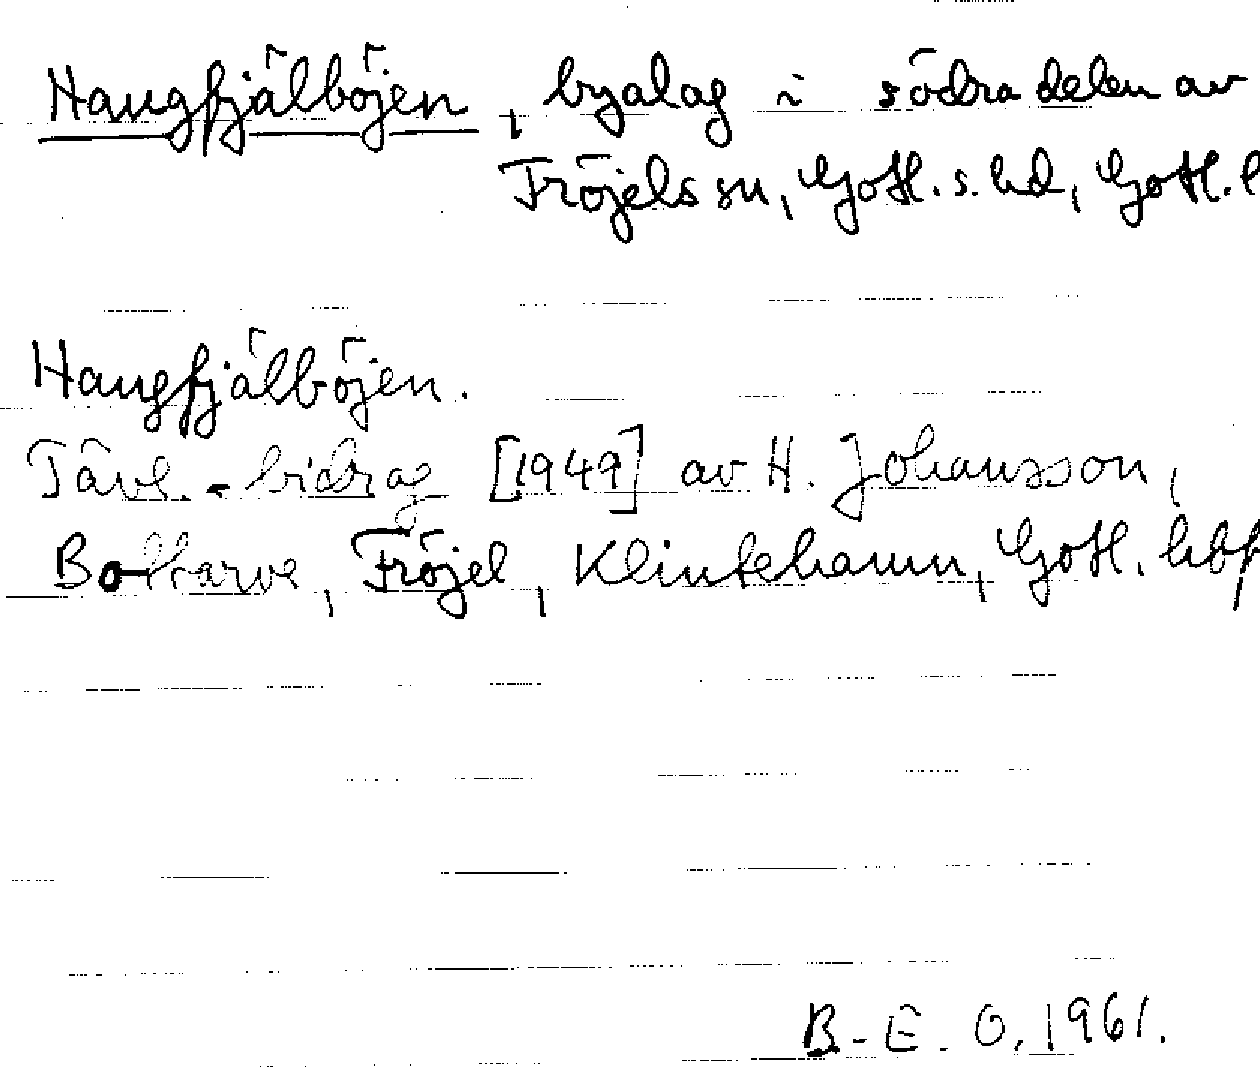 Haugfjälböjen, byalag i södra delen av
Fröjels sn, Gotl. s. hd, Gotl. l
Haugfjälböjen.
Tävl.-bidrag [1949] av H. Johansson,
Bottarve, Fröjel, Klintehamn, Gotl.
B.-E. O. 1961.